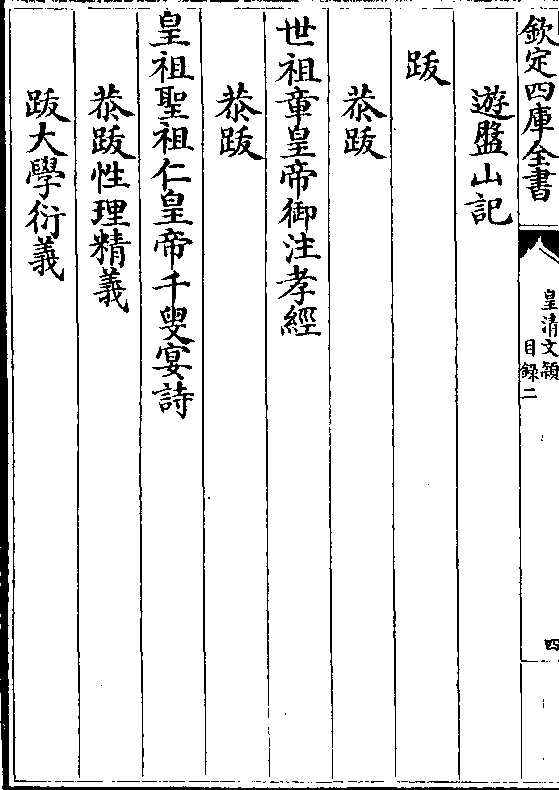 欽定四庫全書
皇清文穎
目録二
四
遊盤山記
跋
恭跋
世祖章皇帝御注孝經
恭跋
皇祖聖祖仁皇帝千叟宴詩
恭跋性理精義
跋大學衍義